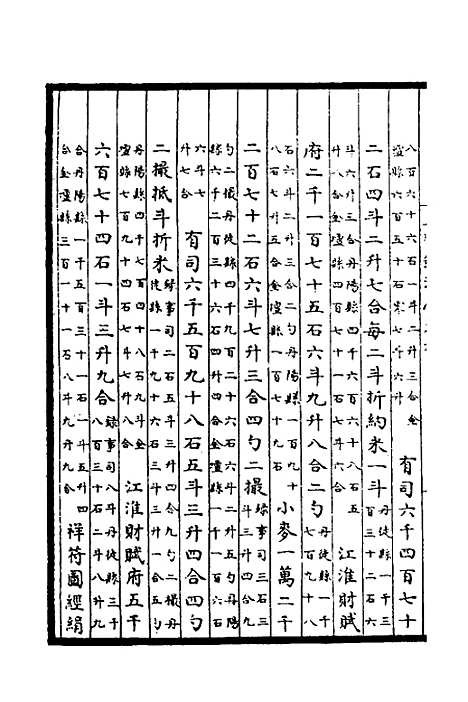 八百六十六石一斗二升三合金
壇縣六百五十石零七斗六升
有司六千四百七十
二石四斗二升七合每二斗折約米一斗
丹徒縣一千三
百三十二石六
斗六升三合丹陽縣四千六百六十八石五
升八合金壇縣四百七十一石七斗六合
江淮財賦
府二千一百七十五石六斗九升八合二勺
丹徒縣一千
七百九十八
石六斗二升三合二勺丹陽縣一百九十
八石七升五合金壇縣一百七十九石
小麥一萬二千
二百七十二石六斗七升三合四勺二撮
錄事司三石三
斗三升四合九
勺二撮丹徒縣四千九百二十六石六斗二升五勺丹陽
縣六千二百三十六石九升四合金壇縣一千一百六石
六斗七
升七合
有司六千五百九十八石五斗三升四合四勺
二撮抵斗折米
錄事司二石五斗三升四合九勺二撮丹
徒縣一千九十六石三斗三升一合五勺
丹陽縣四千七百四十八石九斗金
壇縣七百九十四石七斗七升八合
江淮財賦府五千
六百七十四石一斗三升九合
錄事司八斗丹徒縣三千
八百三十石二斗八升九
合丹陽縣一千五百三十一石一斗五升四
合金壇縣三百一十一石八斗九升九合
祥符圖經絹